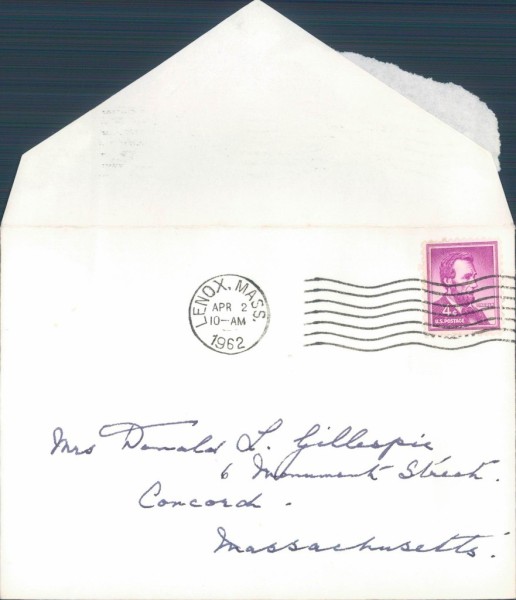 LENOX, MASS.
APR 2
10-AM
1962
4¢
U.S. POSTAGE
Mrs Donald L. Gillespie
6 Monument Street.
Concord.
Massachusetts.